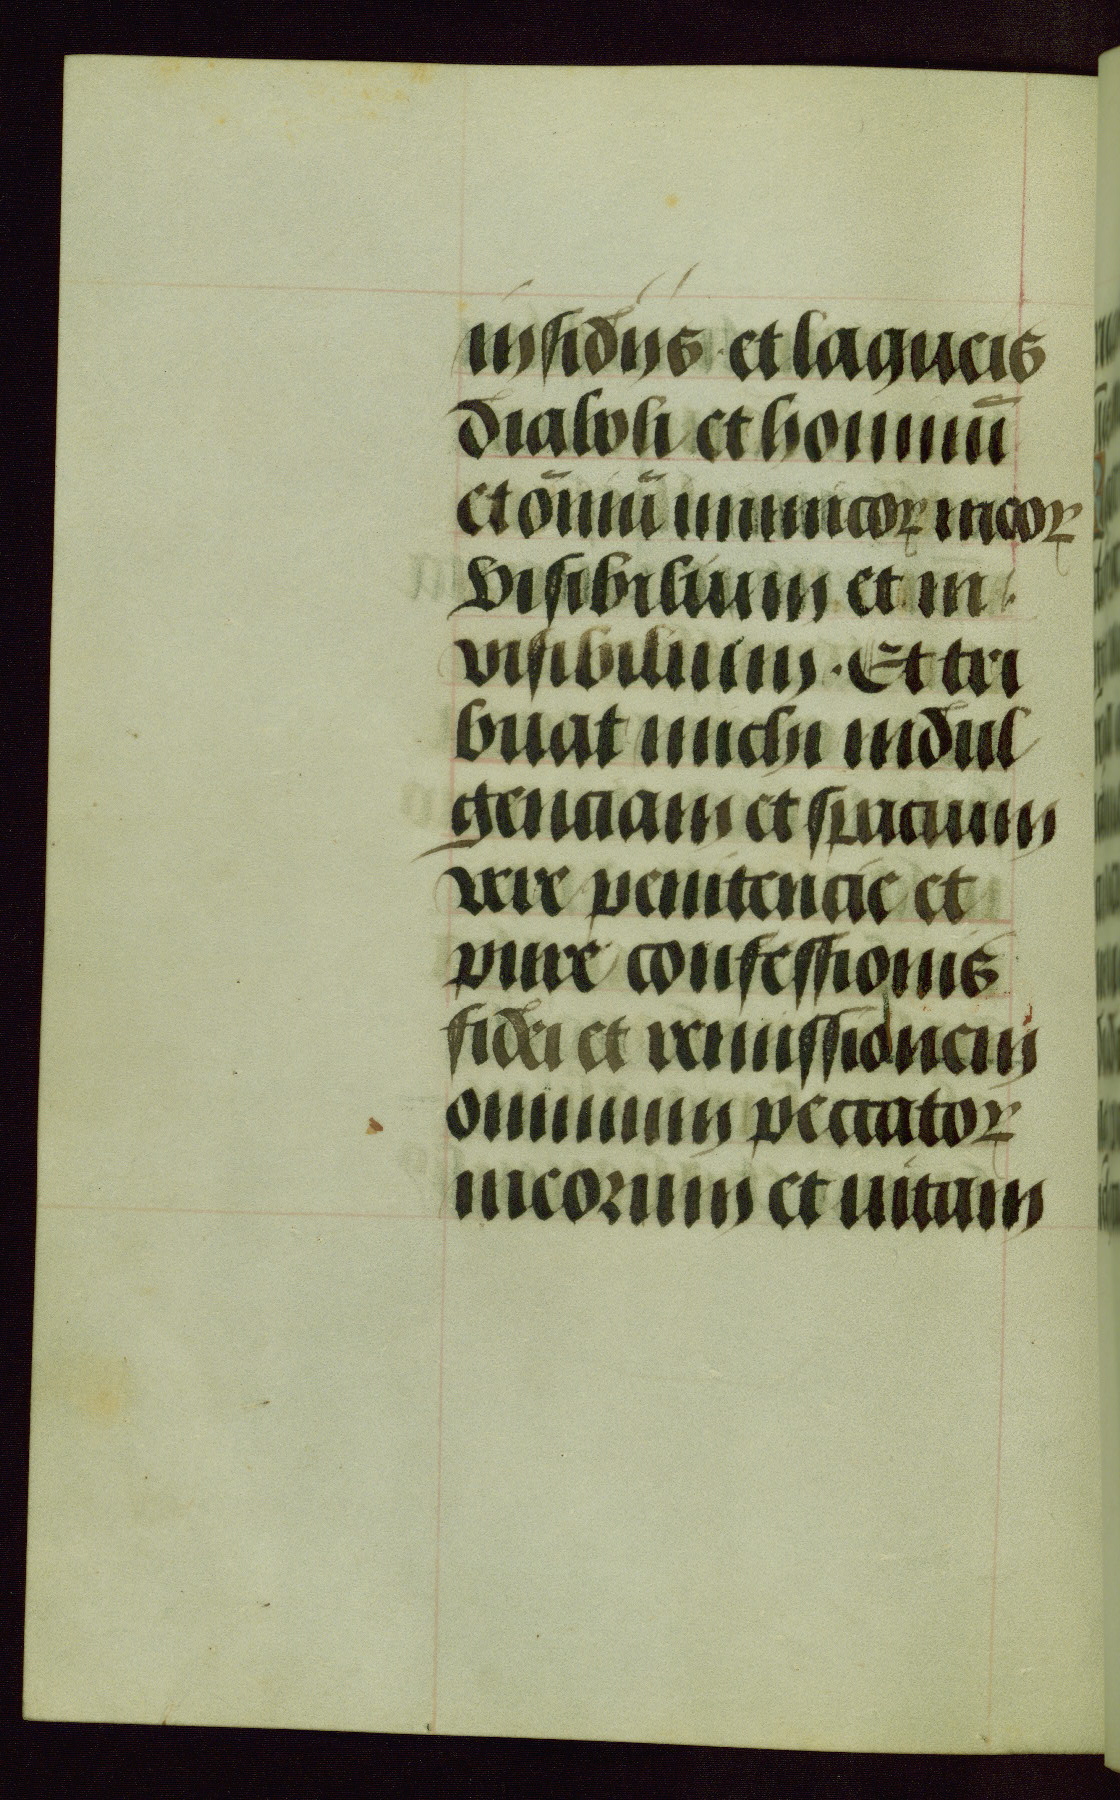 insidiis et laqueis
diaboli et hominū
et ōmiū inimicoꝝ meoꝝ
visibilium et in
visibilium. Et tri
buat michi indul
genciam et spacium
vere penitencie et
pure confessionis
fidei et remissionem
omnium peccatoꝝ
meorum et uitam